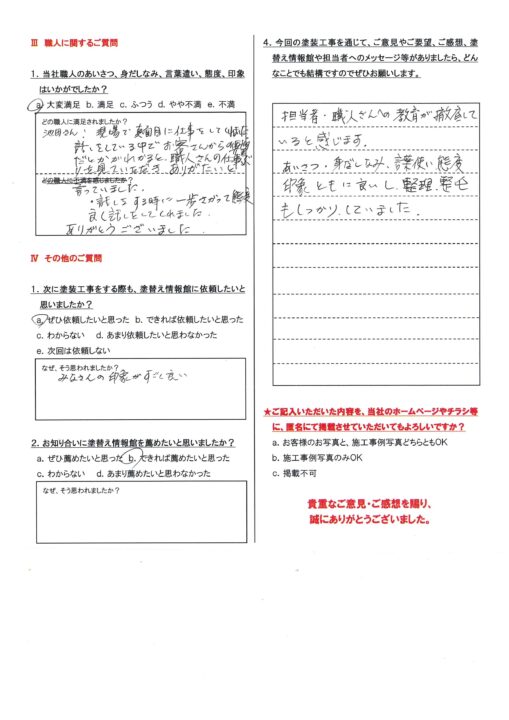 Ⅲ 職人に関するご質問
1. 当社職人のあいさつ、身だしなみ、言葉遣い、態度、印象
はいかがでしたか？
a. 大変満足 b. 満足 c. ふつう d. やや不満 e. 不満
どの職人に満足されましたか？
池田さん！ 現場で真面目に仕事をして
話しをしている中でお客さんからの
だとかがわかると、職人さんの仕事
を見ていただき、ありがたいと
どの職人に不満を感じましたか？
言っていました。
・話しをする時に一歩さがって態度
良く話しをしてくれました。
ありがとうございました
Ⅳ その他のご質問
1. 次に塗装工事をする際も、塗替え情報館に依頼したいと
思いましたか？
a. ぜひ依頼したいと思った b. できれば依頼したいと思った
c. わからない d. あまり依頼したいと思わなかった
e. 次回は依頼しない
なぜ、そう思われましたか？
みなさんの印象がすごく良い
2. お知り合いに塗替え情報館を薦めたいと思いましたか？
a. ぜひ薦めたいと思った b. できれば薦めたいと思った
c. わからない d. あまり薦めたいと思わなかった
なぜ、そう思われましたか？
4. 今回の塗装工事を通じて、ご意見やご要望、ご感想、塗
替え情報館や担当者へのメッセージ等がありましたら、どん
なことでも結構ですのでぜひお願いします。
担当者・職人さんへの教育が徹底して
いると感じます。
あいさつ・身だしなみ、言葉使い態度
印象ともに良いし、整理、整頓
もしっかりしていました。
★ご記入いただいた内容を、当社のホームページやチラシ等
に、匿名にて掲載させていただいてもよろしいですか？
a. お客様のお写真と、施工事例写真どちらともOK
b. 施工事例写真のみOK
c. 掲載不可
貴重なご意見・ご感想を賜り、
誠にありがとうございました。